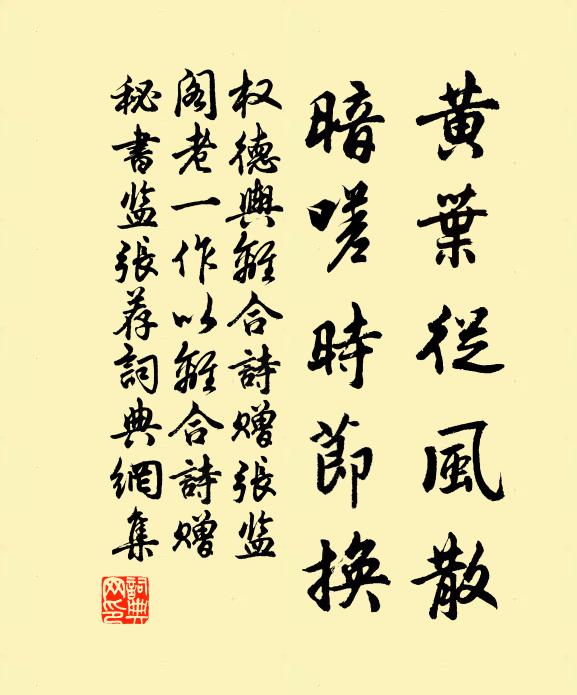 黄葉從風散
暗嗟時節換
权德輿離合詩赠張监
阁老一作以離合詩赠
秘書监張荐詞典網集
詞典网印